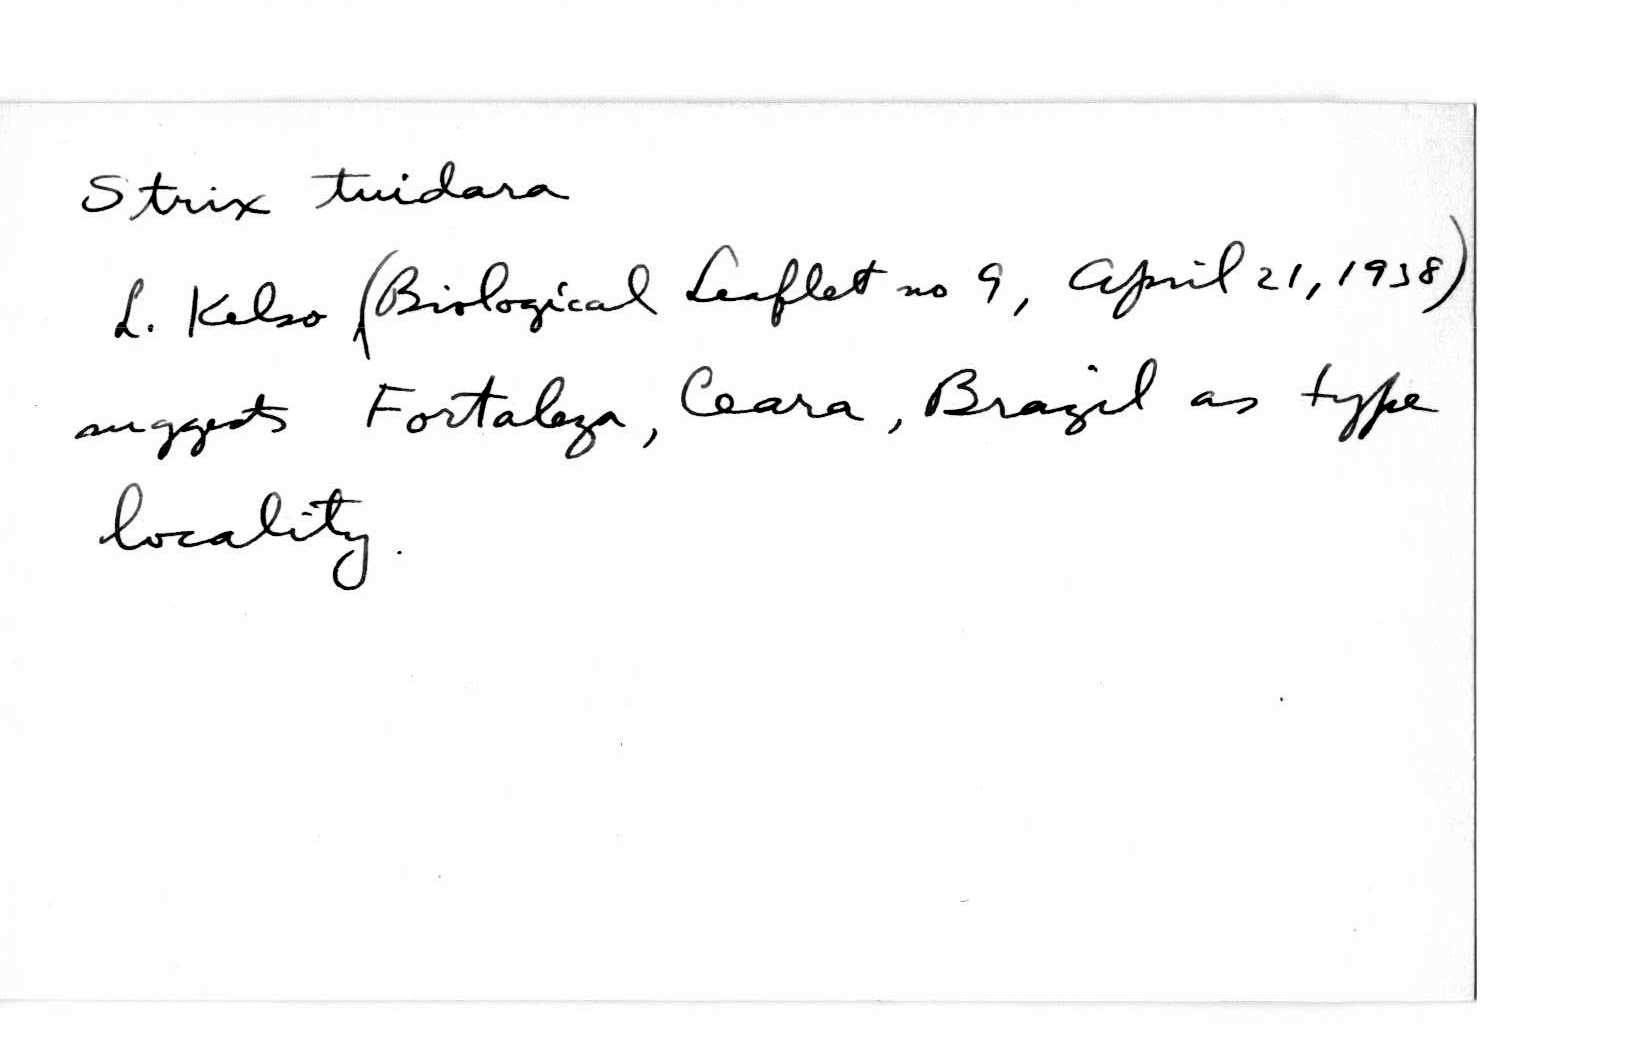 Strix tuidara
L. Kelso (Biological Leaflet no 9, April 21, 1938)
suggests Fortaleza, Ceara, Brazil as type
locality.